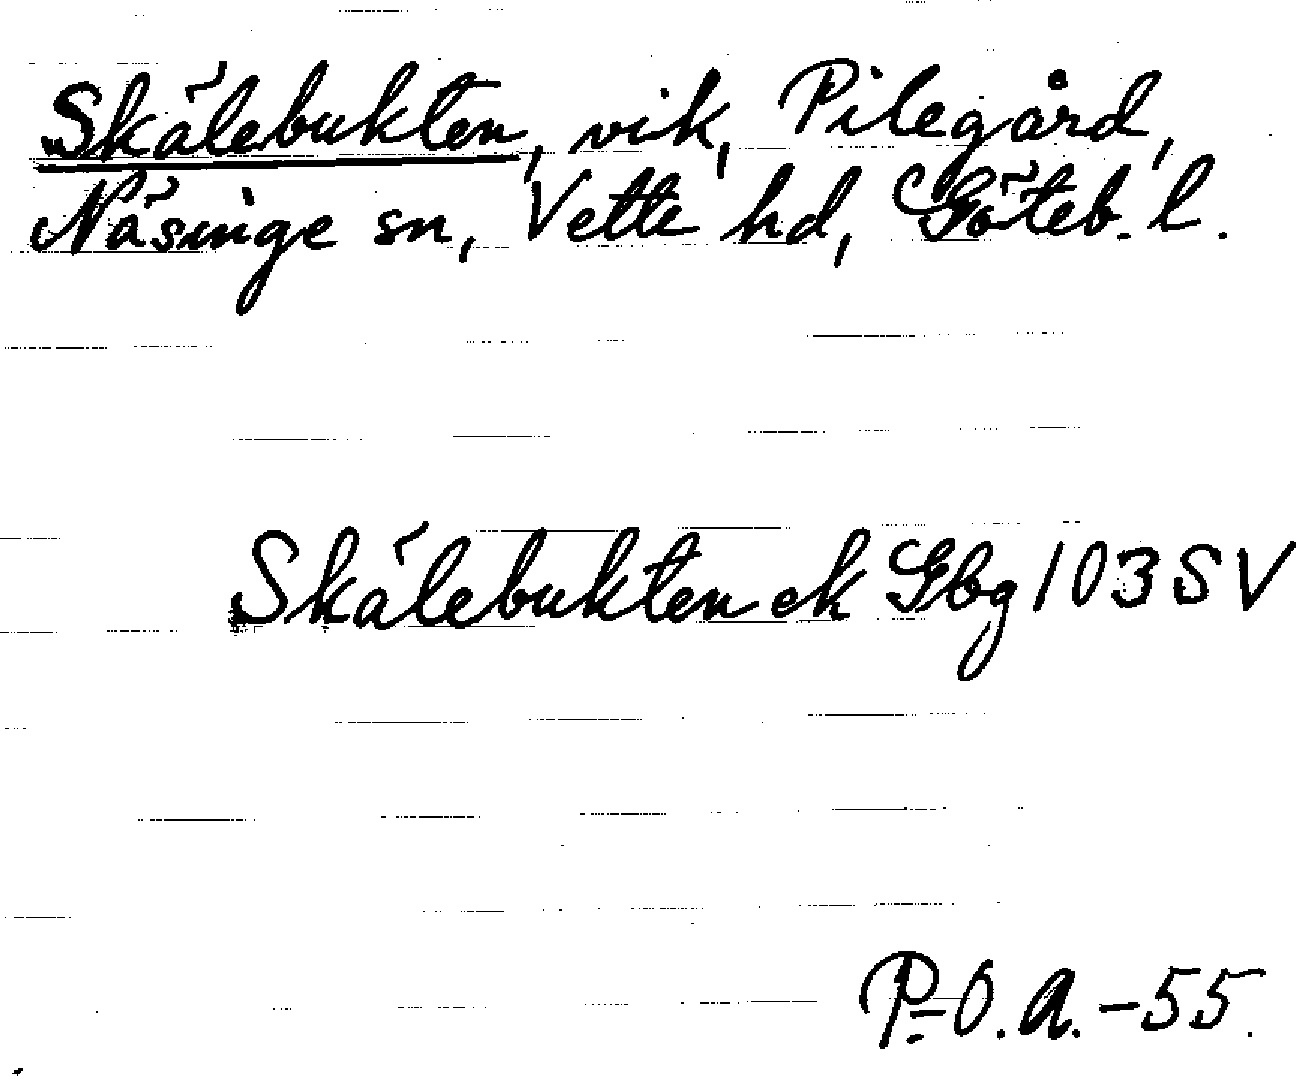 Skälebukten, vik, Pilegård,
Näsinge sn, Vette hd, Göteb. l.
Skälebukten ek Gbg 103 SV
P.-O. A. -55.